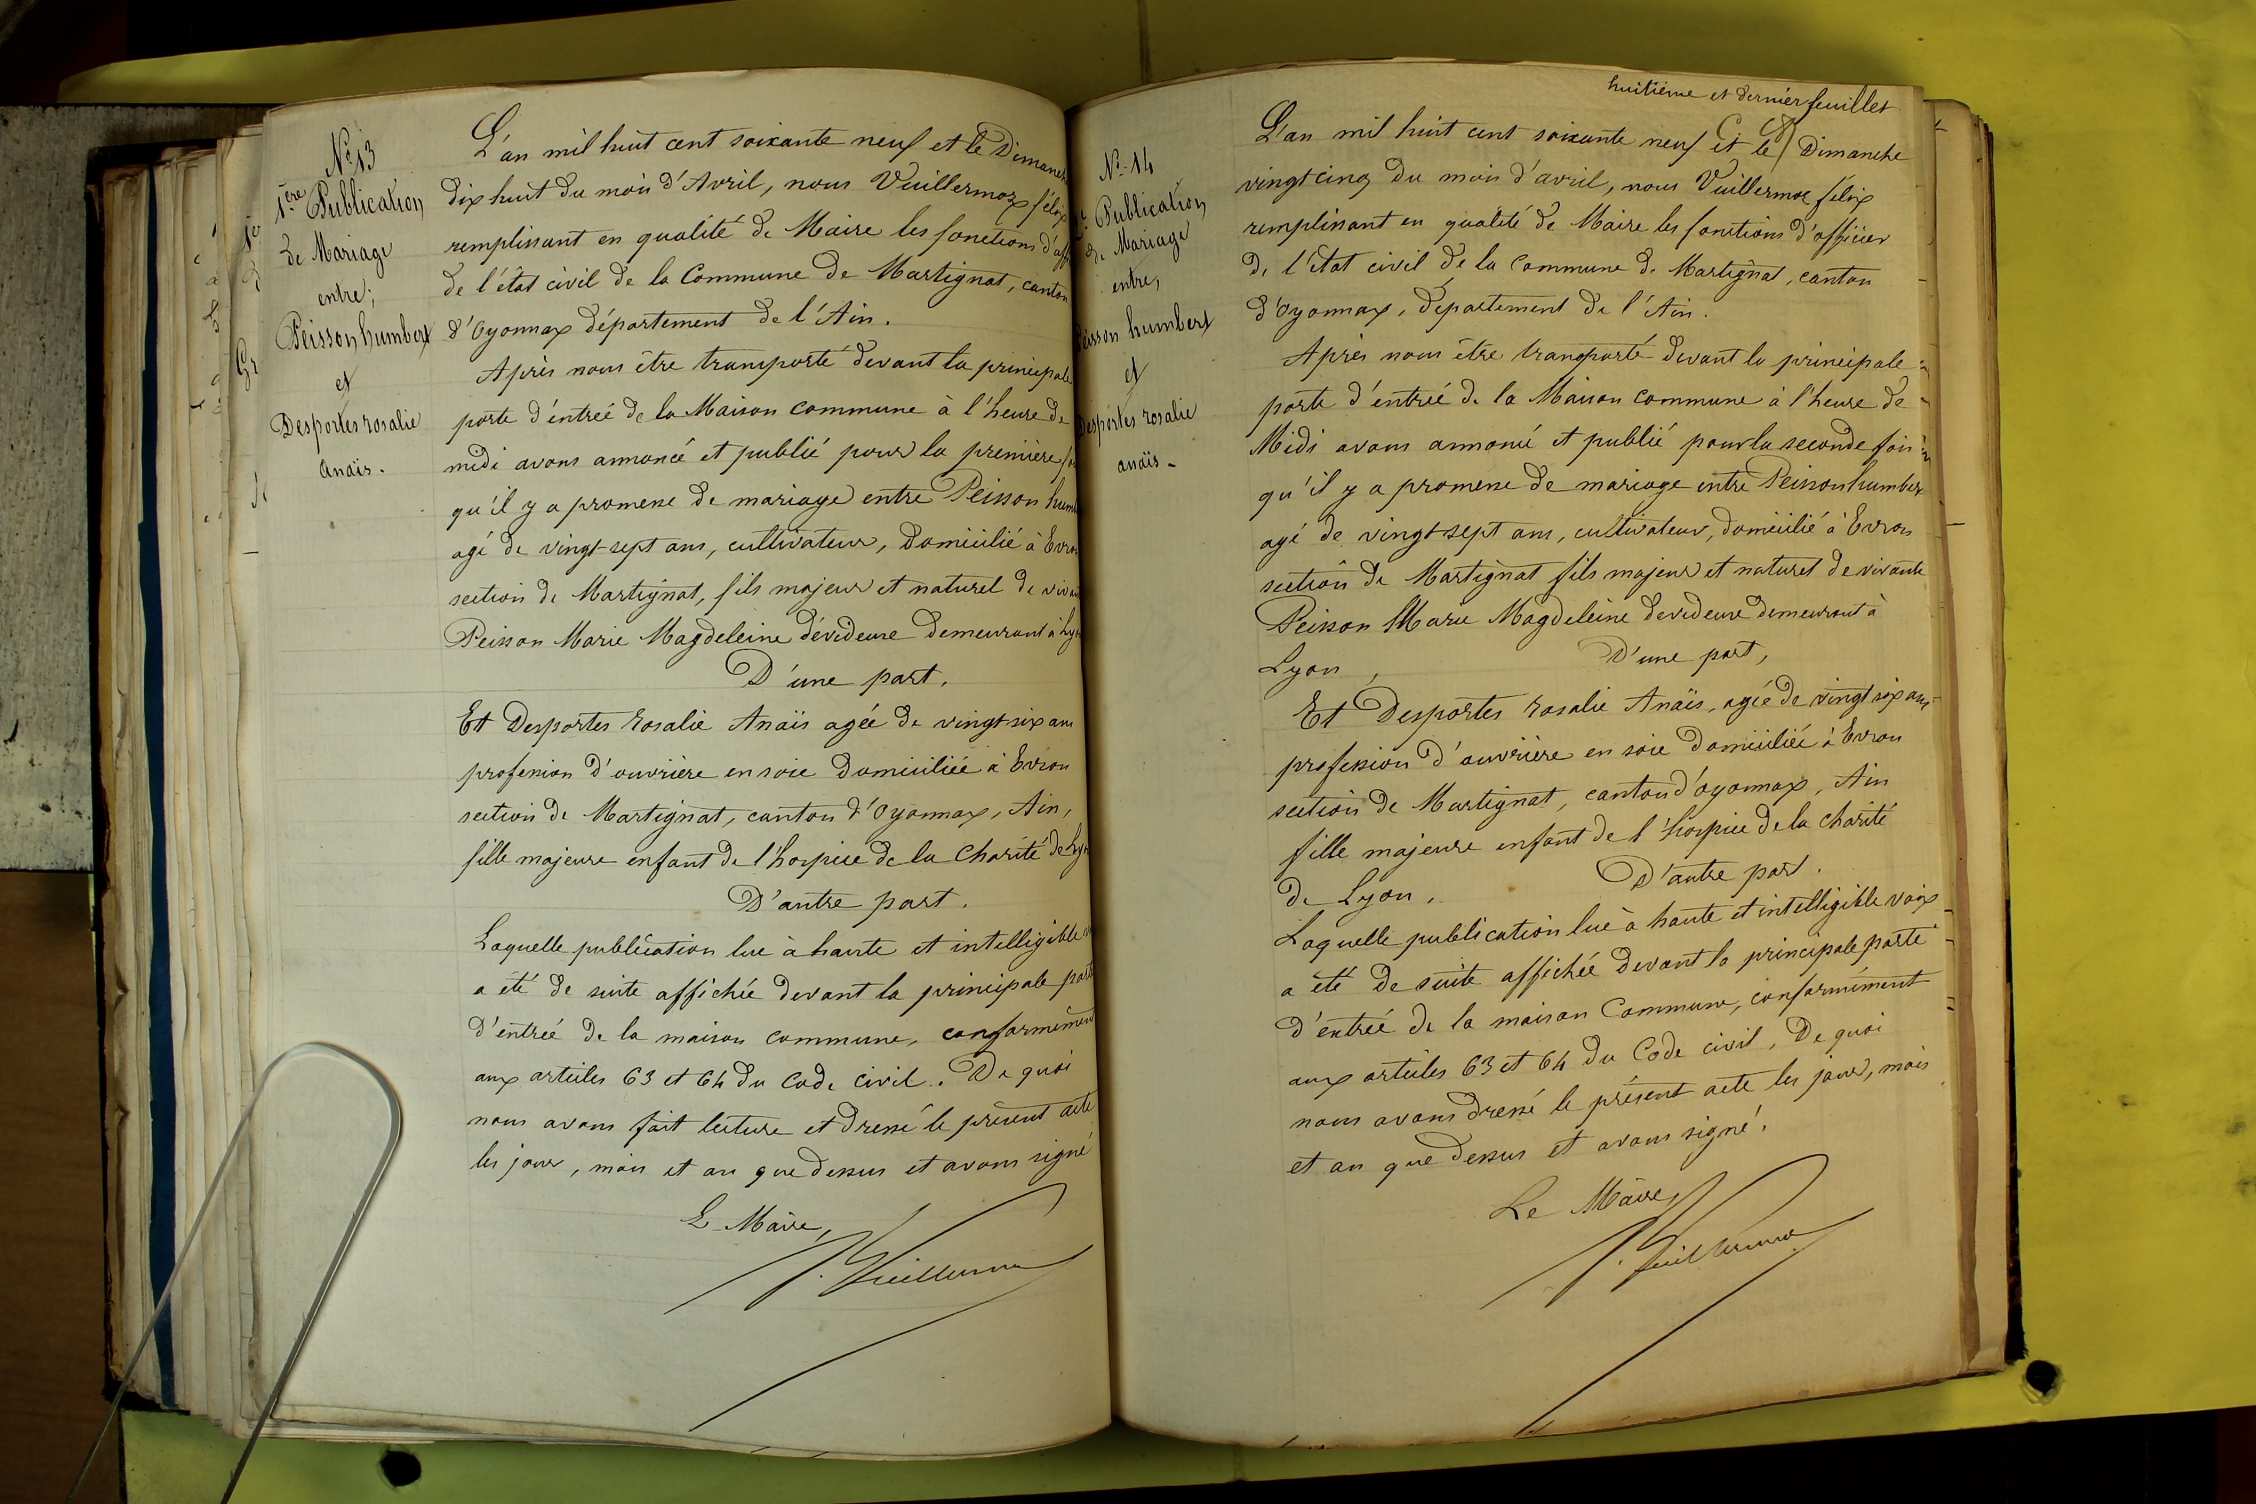 N° 13
1ère Publication
de Mariage
entre;
Peisson humbert
et
Desportes rosalie
anaïs.
L'an mil huit cent soixante neuf et le Dimanche
dix huit du mois d'Avril, nous Vuillermoz félix
remplissant en qualité de Maire les fonctions d'off
de l'état civil de la Commune de Martignat, canton
d'Oyonnax département de l'Ain.
Après nous être transporté devant la principale
porte d'entrée de la Maison commune à l'heure de
midi avons annoncé et publié pour la première
qu'il y a promesse de mariage entre Peisson hum
agé de vingt-sept ans, cultivateur, domicilié à Evron
section de Martignat, fils majeur et naturel de vivan
Peisson Marie Magdeleine dévideuse demeurant à Ly
D'une part.
Et Desportes rosalie Anaïs agée de vingt-six ans
profession d'ouvrière en soie domiciliée à Evron
section de Martignat, canton d'Oyonnax, Ain,
fille majeure enfant de l'hospice de la Charité de Ly
D'autre part.
Laquelle publication lue à haute et intelligible
a été de suite affichée devant la principale porte
d'entrée de la maison commune, conformément
aux articles 63 et 64 du Code civil. De quoi
nous avons fait lecture et dressé le présent acte
les jour, mois et an que dessus et avons signé
Le Maire,
F. Vuillermoz
huitième et dernier feuillet
N° 14
Publication
de Mariage
entre,
Peisson humbert
et
Desportes rosalie
anaïs.
L'an mil huit cent soixante neuf et le Dimanche
vingt cinq du mois d'avril, nous Vuillermoz félix
remplissant en qualité de Maire les fonctions d'officier
de l'état civil de la Commune de Martignat, canton
d'Oyonnax, département de l'Ain.
Après nous être transporté devant la principale
porte d'entrée de la Maison commune à l'heure de
Midi avons annoncé et publié pour la seconde fois
qu'il y a promesse de mariage entre Peisson humbert
agé de vingt-sept ans, cultivateur, domicilié à Evron
section de Martignat fils majeur et naturel de vivante
Peisson Marie Magdeleine devideuse demeurant à
Lyon, D'une part,
Et Desportes rosalie Anaïs, agée de vingt six ans
profession d'ouvrière en soie domiciliée à Evron
section de Martignat, canton d'Oyonnax, Ain
fille majeure enfant de l'hospice de la charité
de Lyon, D'autre part.
Laquelle publication lue à haute et intelligible voix
a été de suite affichée devant la principale porte
d'entrée de la maison Commune, conformément
aux articles 63 et 64 du Code civil, De quoi
nous avons dressé le présent acte les jour, mois
et an que dessus et avons signé.
Le Maire
F. Vuillermoz